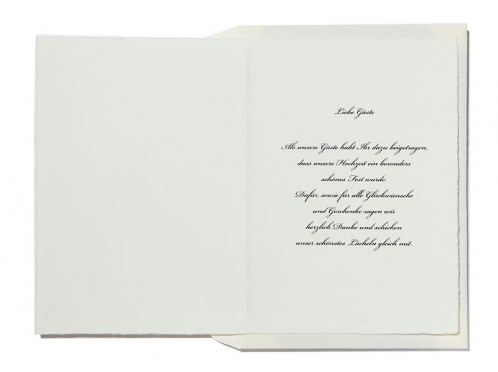 Liebe Gäste
Als unsere Gäste habt Ihr dazu beigetragen,
dass unsere Hochzeit ein besonders
schönes Fest wurde.
Dafür, sowie für alle Glückwünsche
und Geschenke sagen wir
herzlich Danke und schicken
unser schönstes Lächeln gleich mit.